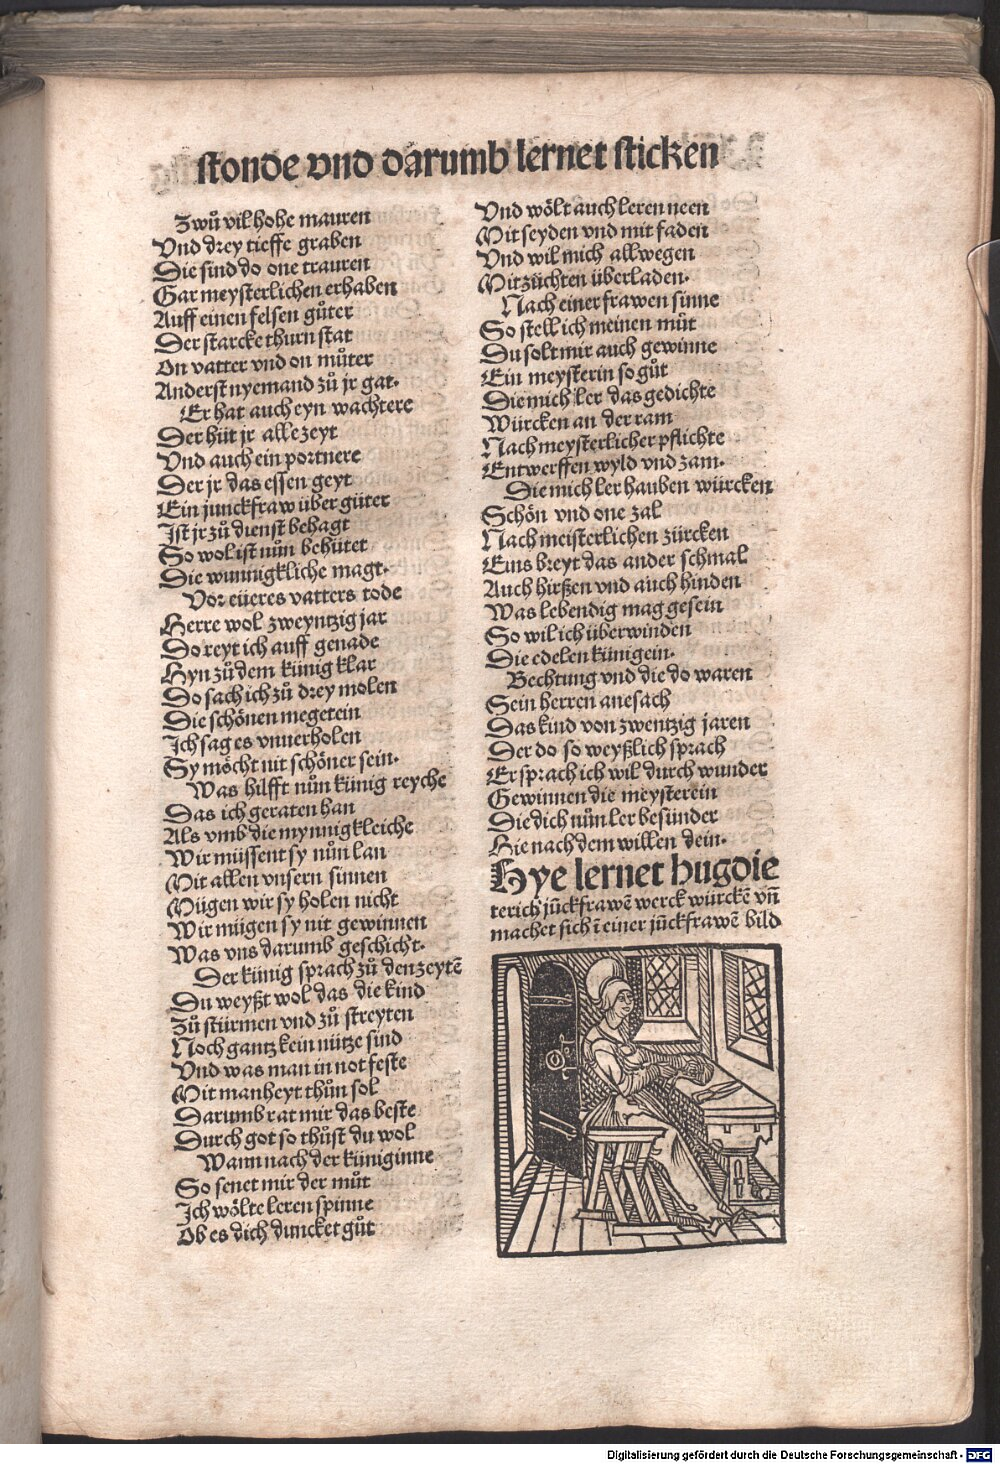 stonde vnd darumb lernet sticken
Zwů vil hohe mauren
Vnd drey tieffe graben
Die sind do one trauren
Gar meysterlichen erhaben
Auff einen felsen gůter
Der starcke thurn stat
On vatter vnd on můter
Anderst nyemand zů jr gat.
Er hat auch eyn wachtere
Der hüt jr alle zeyt
Vnd auch ein portnere
Der jr das essen geyt
Ein junckfraw über güter
Ist jr zů dienst behagt
So wol ist nůn behütet
Die wunnigkliche magt.
Vor eüeres vatters tode
Herre wol zweyntzig jar
Do reyt ich auff genade
Hyn zů dem künig klar
Do sach ich zů drey molen
Die schönen megetein
Ich sag es vnuerholen
Sy möcht nit schöner sein.
Was hilfft nůn künig reyche
Das ich geraten han
Als vmb die mynnigkleiche
Wir müssent sy nůn lan
Mit allen vnsern sinnen
Mügen wir sy holen nicht
Wir mügen sy nit gewinnen
Was vns darumb geschicht.
Der künig sprach zů den zeytē
Du weyßt wol das die kind
Zů stürmen vnd zů streyten
Noch gantz kein nütze sind
Vnd was man in not feste
Mit manheyt thůn sol
Darumb rat mir das beste
Durch got so thůst du wol
Wann nach der küniginne
So senet mir der můt
Ich wölte leren spinne
Ob es dich duncket gůt
Vnd wölt auch leren neen
Mit seyden vnd mit faden
Vnd wil mich allwegen
Mit züchten überladen.
Nach einer frawen sinne
So stell ich meinen můt
Du solt mir auch gewinne
Ein meysterin so gůt
Die mich ler das gedichte
Würcken an der ram
Nach meysterlicher pflichte
Entwerffen wyld vnd zam.
Die mich ler hauben würcken
Schön vnd one zal
Nach meisterlichen zürcken
Eins breyt das ander schmal
Auch hirßen vnd auch hinden
Was lebendig mag gesein
So wil ich überwinden
Die edelen künigein.
Bechtung vnd die do waren
Sein herren anesach
Das kind von zwentzig jaren
Der do so weyßlich sprach
Er sprach ich wil durch wunder
Gewinnen die meysterein
Die dich nůn ler besunder
Hie nach dem willen dein.
Hye lernet hugdie
terich jūckfrawē werck würckē vñ
machet sich ī einer jūckfrawē bild
Digitalisierung gefördert durch die Deutsche Forschungsgemeinschaft - DFG